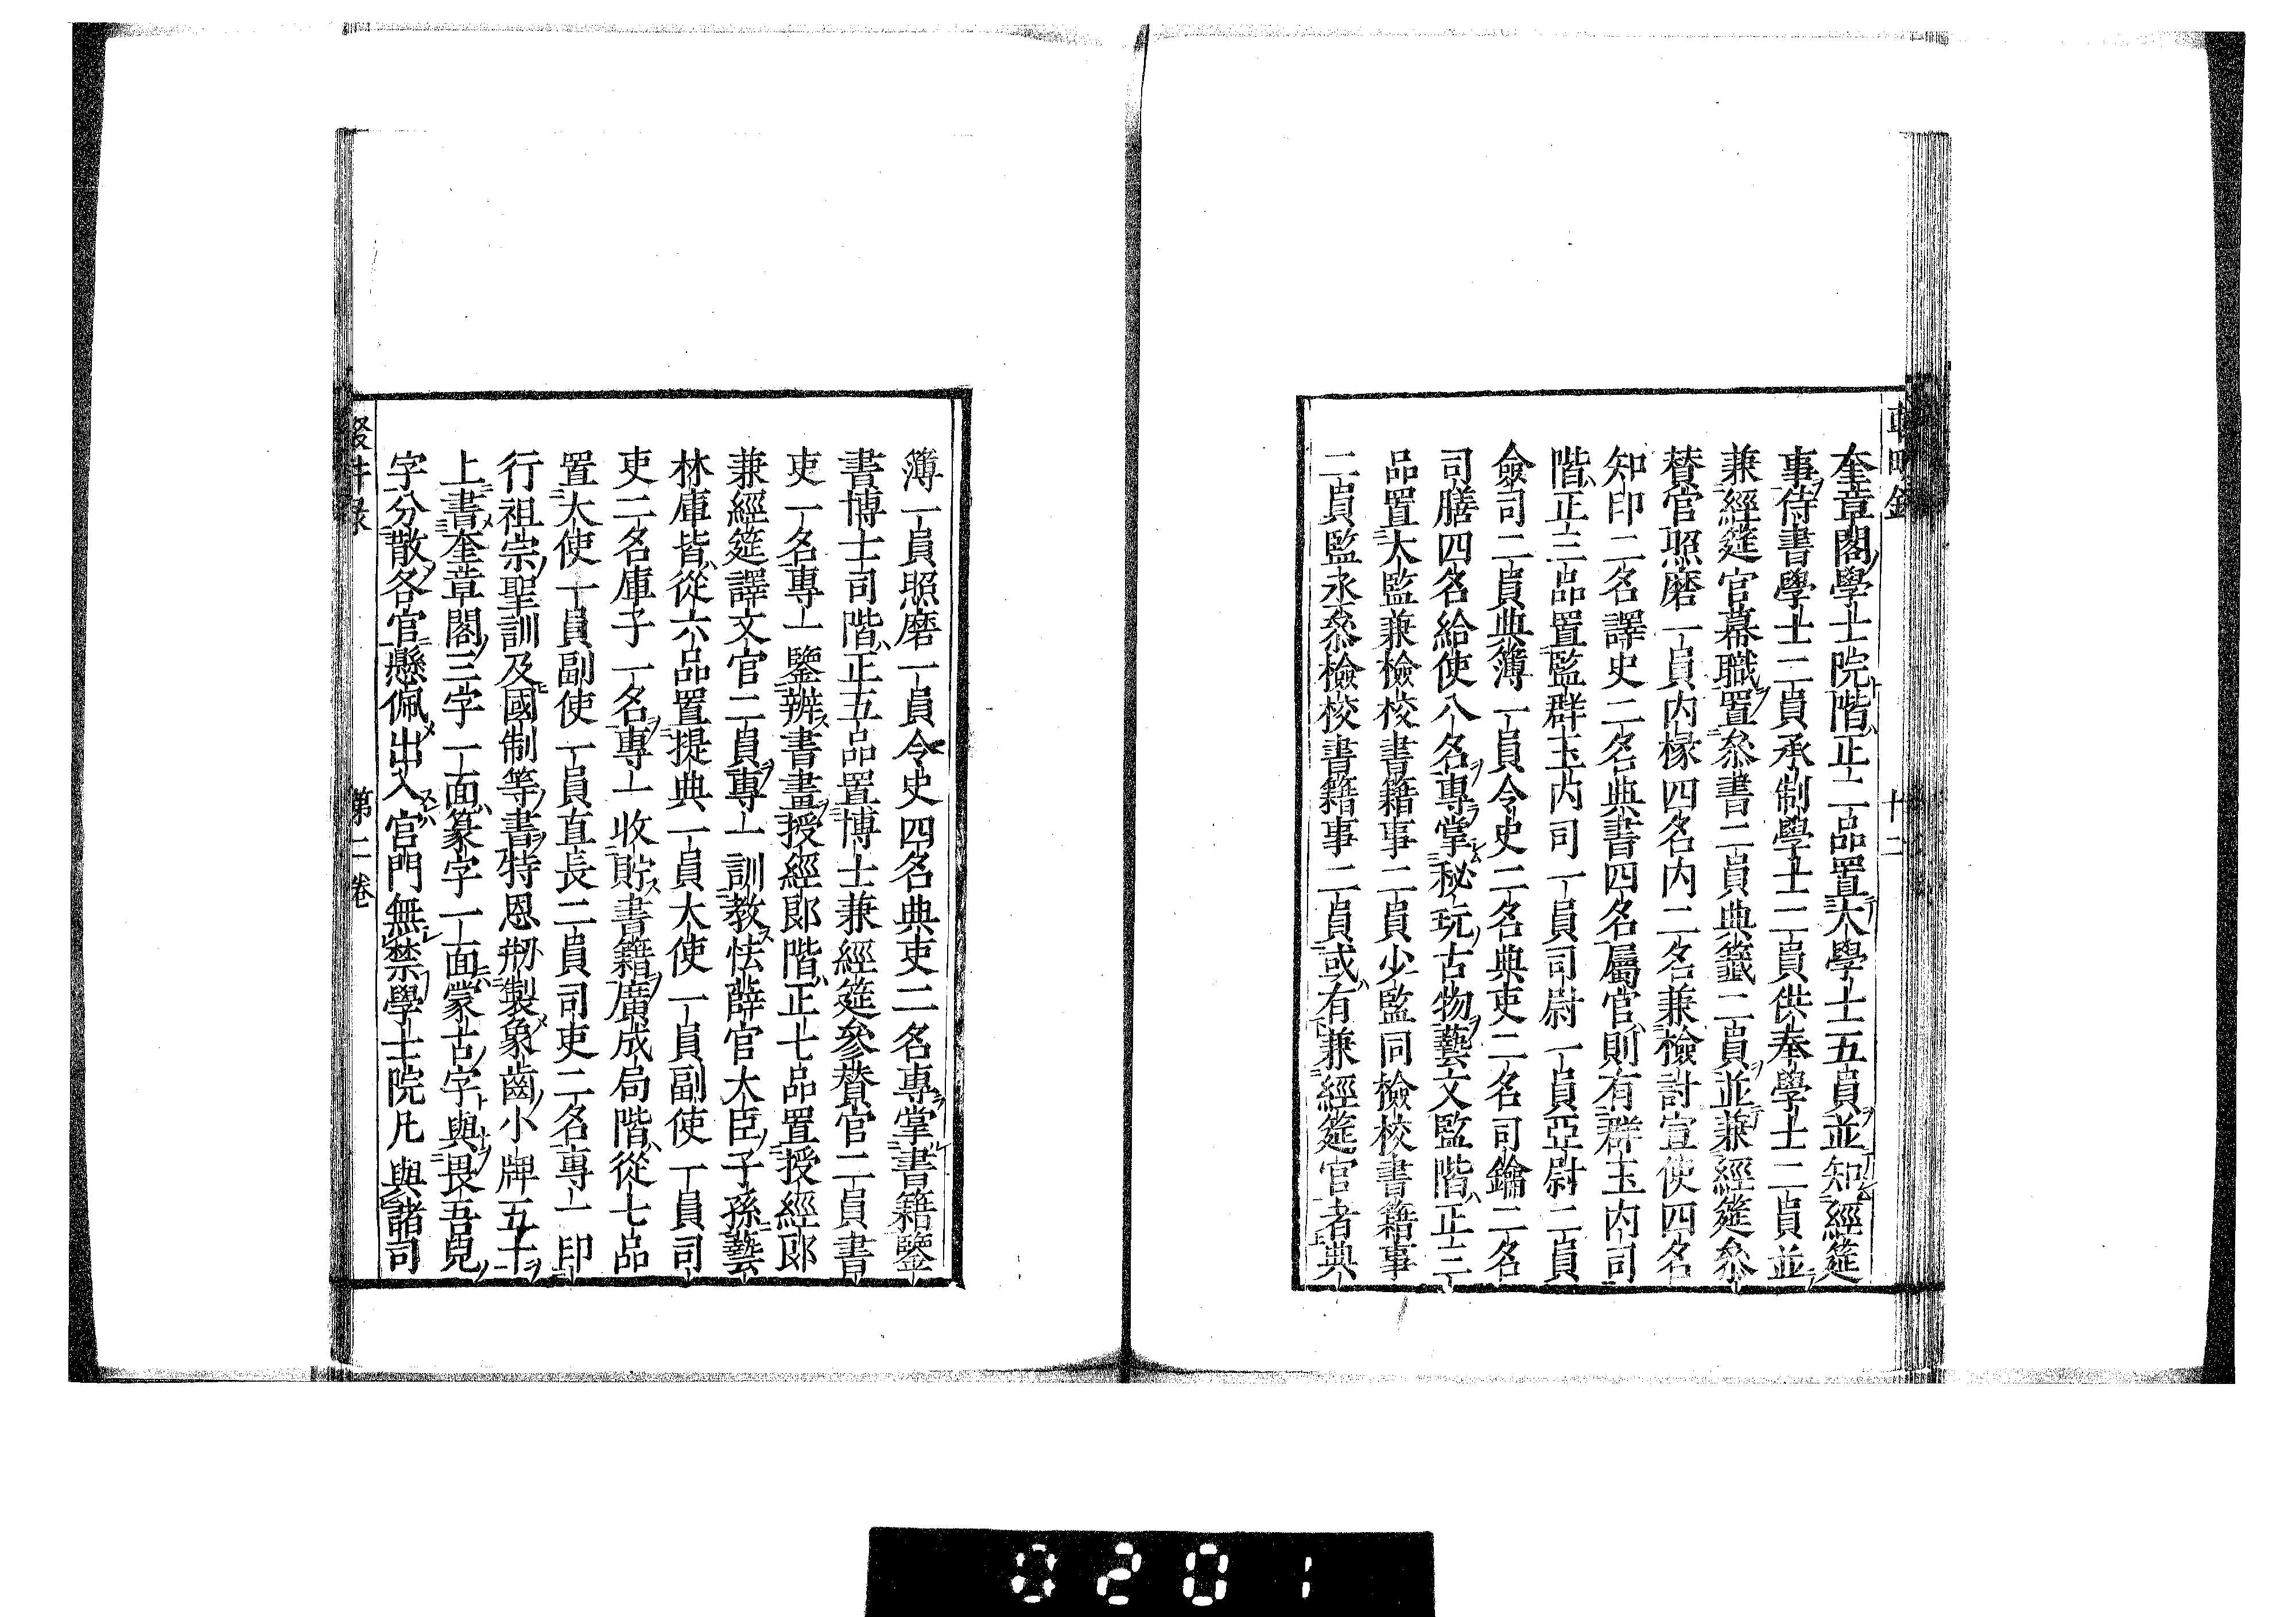 奎章閣學士院階正二品置大學士五員並知經筵
事侍書學士二員承制學士二員供奉學士二員並
兼經筵官幕職置叅書二員典籤二員並兼經筵叅
賛官照磨一員内掾四名内二名兼檢討宣使四名
知印二名譯史二名典書四名屬官則有群玉内司
階正三品置監群玉内司一員司尉一員亞尉二員
僉司二員典簿一員令史二名典吏二名司鑰二名
司膳四名給使八名專掌秘玩古物藝文監階正三
品置太監兼檢校書籍事二員少監同檢校書籍事
二員監丞叅檢校書籍事二員或有兼經筵官者典
十二
簿一員照磨一員令史四名典吏二名專掌書籍鑒
書博士司階正五品置博士兼經筵參賛官二員書
吏一名專一鑒辨書畫授經郎階正七品置授經郎
兼經筵譯文官二員專一訓教怯薛官大臣子孫藝
林庫皆從六品置提典一員大使一員副使一員司
吏二名庫子一名專一收貯書籍廣成局階從七品
置大使一員副使一員直長二員司吏二名專一印
行祖宗聖訓及國制等書特恩刱製象齒小牌五十
上書奎章閣三字一面篆字一面蒙古字與畏吾兒
字分散各官懸佩出入宫門無禁學士院凡與諸司
第二卷